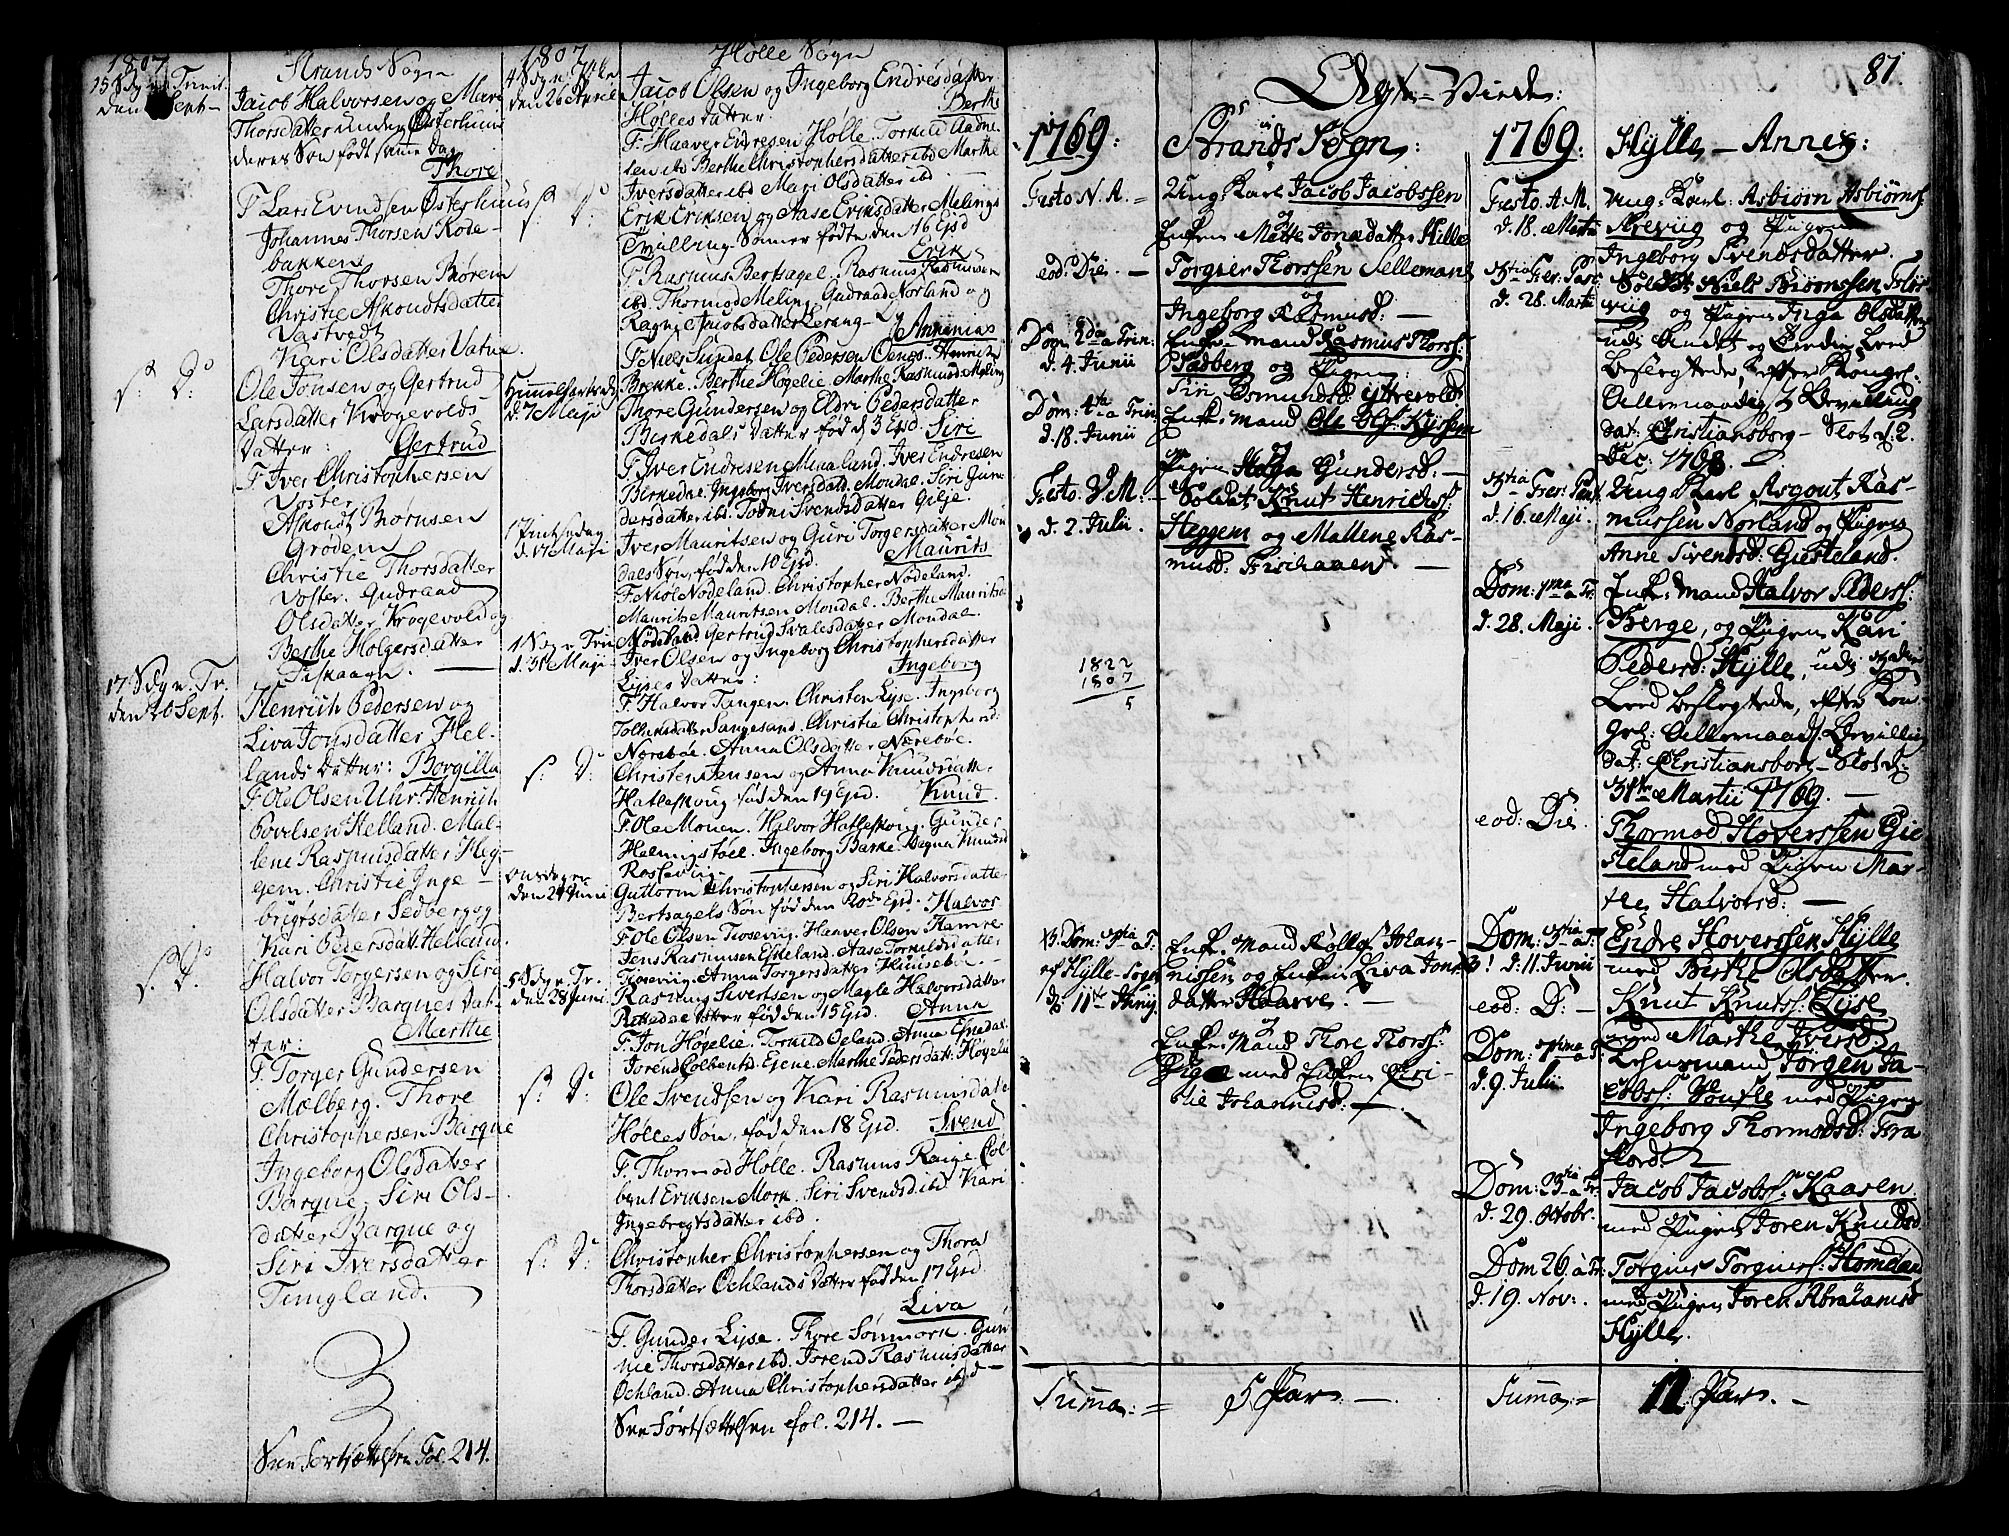 1807
Strands Sogn
15 Søgn: Trinit.
den Sept.
Jacob Halvorsen og Mari
Thorsdatter under Østerhuus
deres Søn født samme dag
Thore
F. Lars Evindsen Østerhuus
Johannes Thorsen Rode-
bakken
Thore Thorsen Biørem
Christie Asmondsdatter
Vastvedt
Kari Olsdatter Vatne.
s. D:
Ole Jonsen og Gertrud
Larsdatter Krogevolds
Datter: Gertrud
F. Iver Christophersen
Voster
Asmondt Thornsen
Grødem
Christie Thorsdatter
Voster. Gudraad
Olsdatter Krogevold og
Berthe Holgersdatter
Fiskaaen.
17 Søgn. Tr.
den 20 Sept.
Henrich Pedersen og
Liva Jonsdatter Hel-
lands Datter: Borgilla
F. Ole Olsen Uhr. Henrich
Povelsen Helland. Mal-
lene Rasmusdatter Heg-
gem. Christie Inge-
brigtsdatter Sedberg og
Kari Pedersdatt: Helland.
s. D:
Halvor Torgersen og Siri
Olsdatter Barques Dat-
ter: Marthe
F. Torger Gundersen
Mælberg. Thore
Christophersen Barque
Ingeborg Olsdatter
Barque, Siri Ols-
datter Barque og
Siri Iversdatter
Tungland.
See Fortsættelsen Fol. 214.
1807
Holle Sogn
4 Søgn. p. Paaske
den 26 April
Jacob Olsen og Ingeborg Endresdatter
Holles datter: Berthe
F. Haaver Endresen Holle. Torkild Aadne-
sen ibd Berthe Christophersdatter ibd Marthe
Iversdatter ibd Mari Olsdatter ibd
s. D:
Erik Eriksen og Aase Eriksdatter Melings
Tvilling-Sønner fødte den 16 Ejsd
Erik
F. Rasmus Bertsagel. Rasmus Rasmusen
ibd. Thormod Meling. Gudraad Norland og
Ragne Jacobsdatter Lerang - og Annanias
F. Niels Sundet Ole Pedersen Oenes. Henrich
Brekke. Berthe Høgelie. Marthe Rasmusd: Meling
Himmelfartsdag
d. 7 Maji
Thore Gundersen og Eldri Pedersdatter
Berkedals Datter fød d. 3 Ejsd. Siri
F. Iver Endresen Mæland. Iver Endresen
Berkedne. Ingeborg Iversdatt. Mondal. Siri Gun-
dersdatter ibd. Todni Svendsdatter Gilje.
1 Pintsedag
d. 17 Maji
Iver Mauritsen og Guri Torgersdatter Mon
dals Søn, fød den 10 Ejsd. Maurits
F. Niøl Nødeland. Christopher Nødeland.
Maurits Mauritsen Mondal. Berthe Mauritsd:
Nødeland Gertrud Svalesdatter Mondal.
1 Søgn. Trin
d. 31 Maji
Iver Olsen og Ingeborg Christophersdatter
Lyses Datter: Ingeborg
F. Halvor Tangen. Christen Lyse. Ingeborg
Tollendsdatter Sangesand. Christie Christophersd:
Norebøe. Anna Olsdatter Nærebøe.
s. D:
Christen Jensen og Anna Knudsdatter
Hatleskoug fød den 19 Ejsd. Knud
F. Ole Monen. Halvor Hatleskoug. Gunder
Helmigstøel. Ingeborg Barke. Magna Knudsd
Rosseviig.
Onsdagen
den 24 Juni
Guttorm Christophersen og Siri Halvorsdatter
Bertsagels Søn fød den 20de Ejsd. Halvor
F. Ole Olsen Fosseviig. Haaver Olsen Hamre
Jens Rasmusen Eskeland. Aase Torkildsdatter
Fosseviig. Anna Torgersdatter Huusebøe.
5 Søgn. Tr.
den 28 Juni
Rasmus Sivertsen og Magle Halvorsdatter
Rettedal Datter fød den 15 Ejsd. Anna
F. Jon Høgelie. Torkild Oeland. Anna Espedal.
Jorend Colbentsd. Ejene. Marthe Pedersdatt: Høgelie
s. D:
Ole Svendsen og Kari Rasmusdatter
Holles Søn, fød den 18 Ejsd. Svend
F. Thormod Holle. Rasmus Raige Col-
bent Eriksen Mork. Siri Svendsd. ibd Kari
Ingebregtsdatter ibd.
s. D:
Christopher Christophersen og Thora
Thorsdatter Ochlands Datter fød den 17 Ejsd
Liva
F. Gunder Lyse. Thore Sønmork. Gun-
nie Thorsdatter ibd. Jorend Rasmusdatter
Ochland. Anna Christophersdatter ibid
See Fortsættelsen fol. 214.
87
Ægte-Viede:
1769:
Strands Sogn:
Festo N. A. =
Ung: Karl Jacob Jacobssen
og
Enken Mætte Jonsdatter Hille
eod. Die. -
Torgier Thorssen Sellemand
og
Ingeborg Rasmusd: -
Dom: 2da a Trin:
d. 4. Junii
Enke-mand Rasmus Thorss:
Tadberg og Pigen:
Siri Osmundsd. Yttrevold
Dom: 4ta a Trin:
d. 18. Junii
Enke mand Ole Ols: Kyssen
og
Pigen Helga Gundersd. -
Festo V. M. -
d. 2. Julii.
Soldat Knut Henrichss:
Heggem og Mallene Ras-
musd: Fischaaen -
1822
1807
5
Dom: 3tia a T.
ved Hylle-Sogn
d. 11te Junij
Enke-Mand Rollof Johan-
nissen og Enken Liva Jons-
datter Haarve. -
og
Enke-Mand Thore Thorss:
med Enken Siri-
tie Johannisd: -
Summa: = 5 Par. -
1769:
Hylle - Annex:
Festo A. M.
d. 18. Martii
Ung: Karl: Asbiørn Asbiørns:
Prevug og Pigen
Ingeborg Svendsdatter.
3tia Fer. Pasc.
d. 28. Martii
Soldat Niels Biørnssen Fløs-
viig og Pigen Inga Olsdatter
udi Andet og Tredie Leed
Beslegtede, efter Konges:
Allernaadigst Bevilling
dat: Christiansborg-Slot d: 2.
Dec: 1768. -
3tia Fer: Pent
d. 16. Maji.
Ung Karl Asgout Ras-
mussen Norland og Pigen
Anne Svendsd: Giesteland.
Dom: 1ma a Tr.
d. 28. Maji.
Enke-mand Halvor Pederss:
Berge, og Pigen Kari
Pedersd: Hylle, udi 3die
Leed beslegtede, efter Kon-
gel: Allernaad: Bevilling
dat: Christiansborg-Slot d.
31te Martii 1769. -
eod: Die.
Thormod Hoverssen Gie-
steland med Pigen Mar-
the Halvorsd: -
Dom: 3tia a T:
d. 11. Junii
Endre Hoverssen Hylle
med Birthe Olsdatter
eod: D: -
Knut Knutss: Lyse
med Marthe Iversd:
Dom: 7tima a T.
d. 9. Julii
Huusmand Jørgen Ja-
cobss: med Pigen
Ingeborg Thormodsd: Fra
Fiord -
Dom: 23tia a Tr.
d. 29. Octobr.
Jacob Jacobss: Haasen
med Pigen Joren Knudsd
Dom 26. a Tr:
d. 19. Nov:
Torgius Torgiuss: Homeland
med Pigen Joren Abrahamsd
Hylle.
Summa: = 12 Par. -